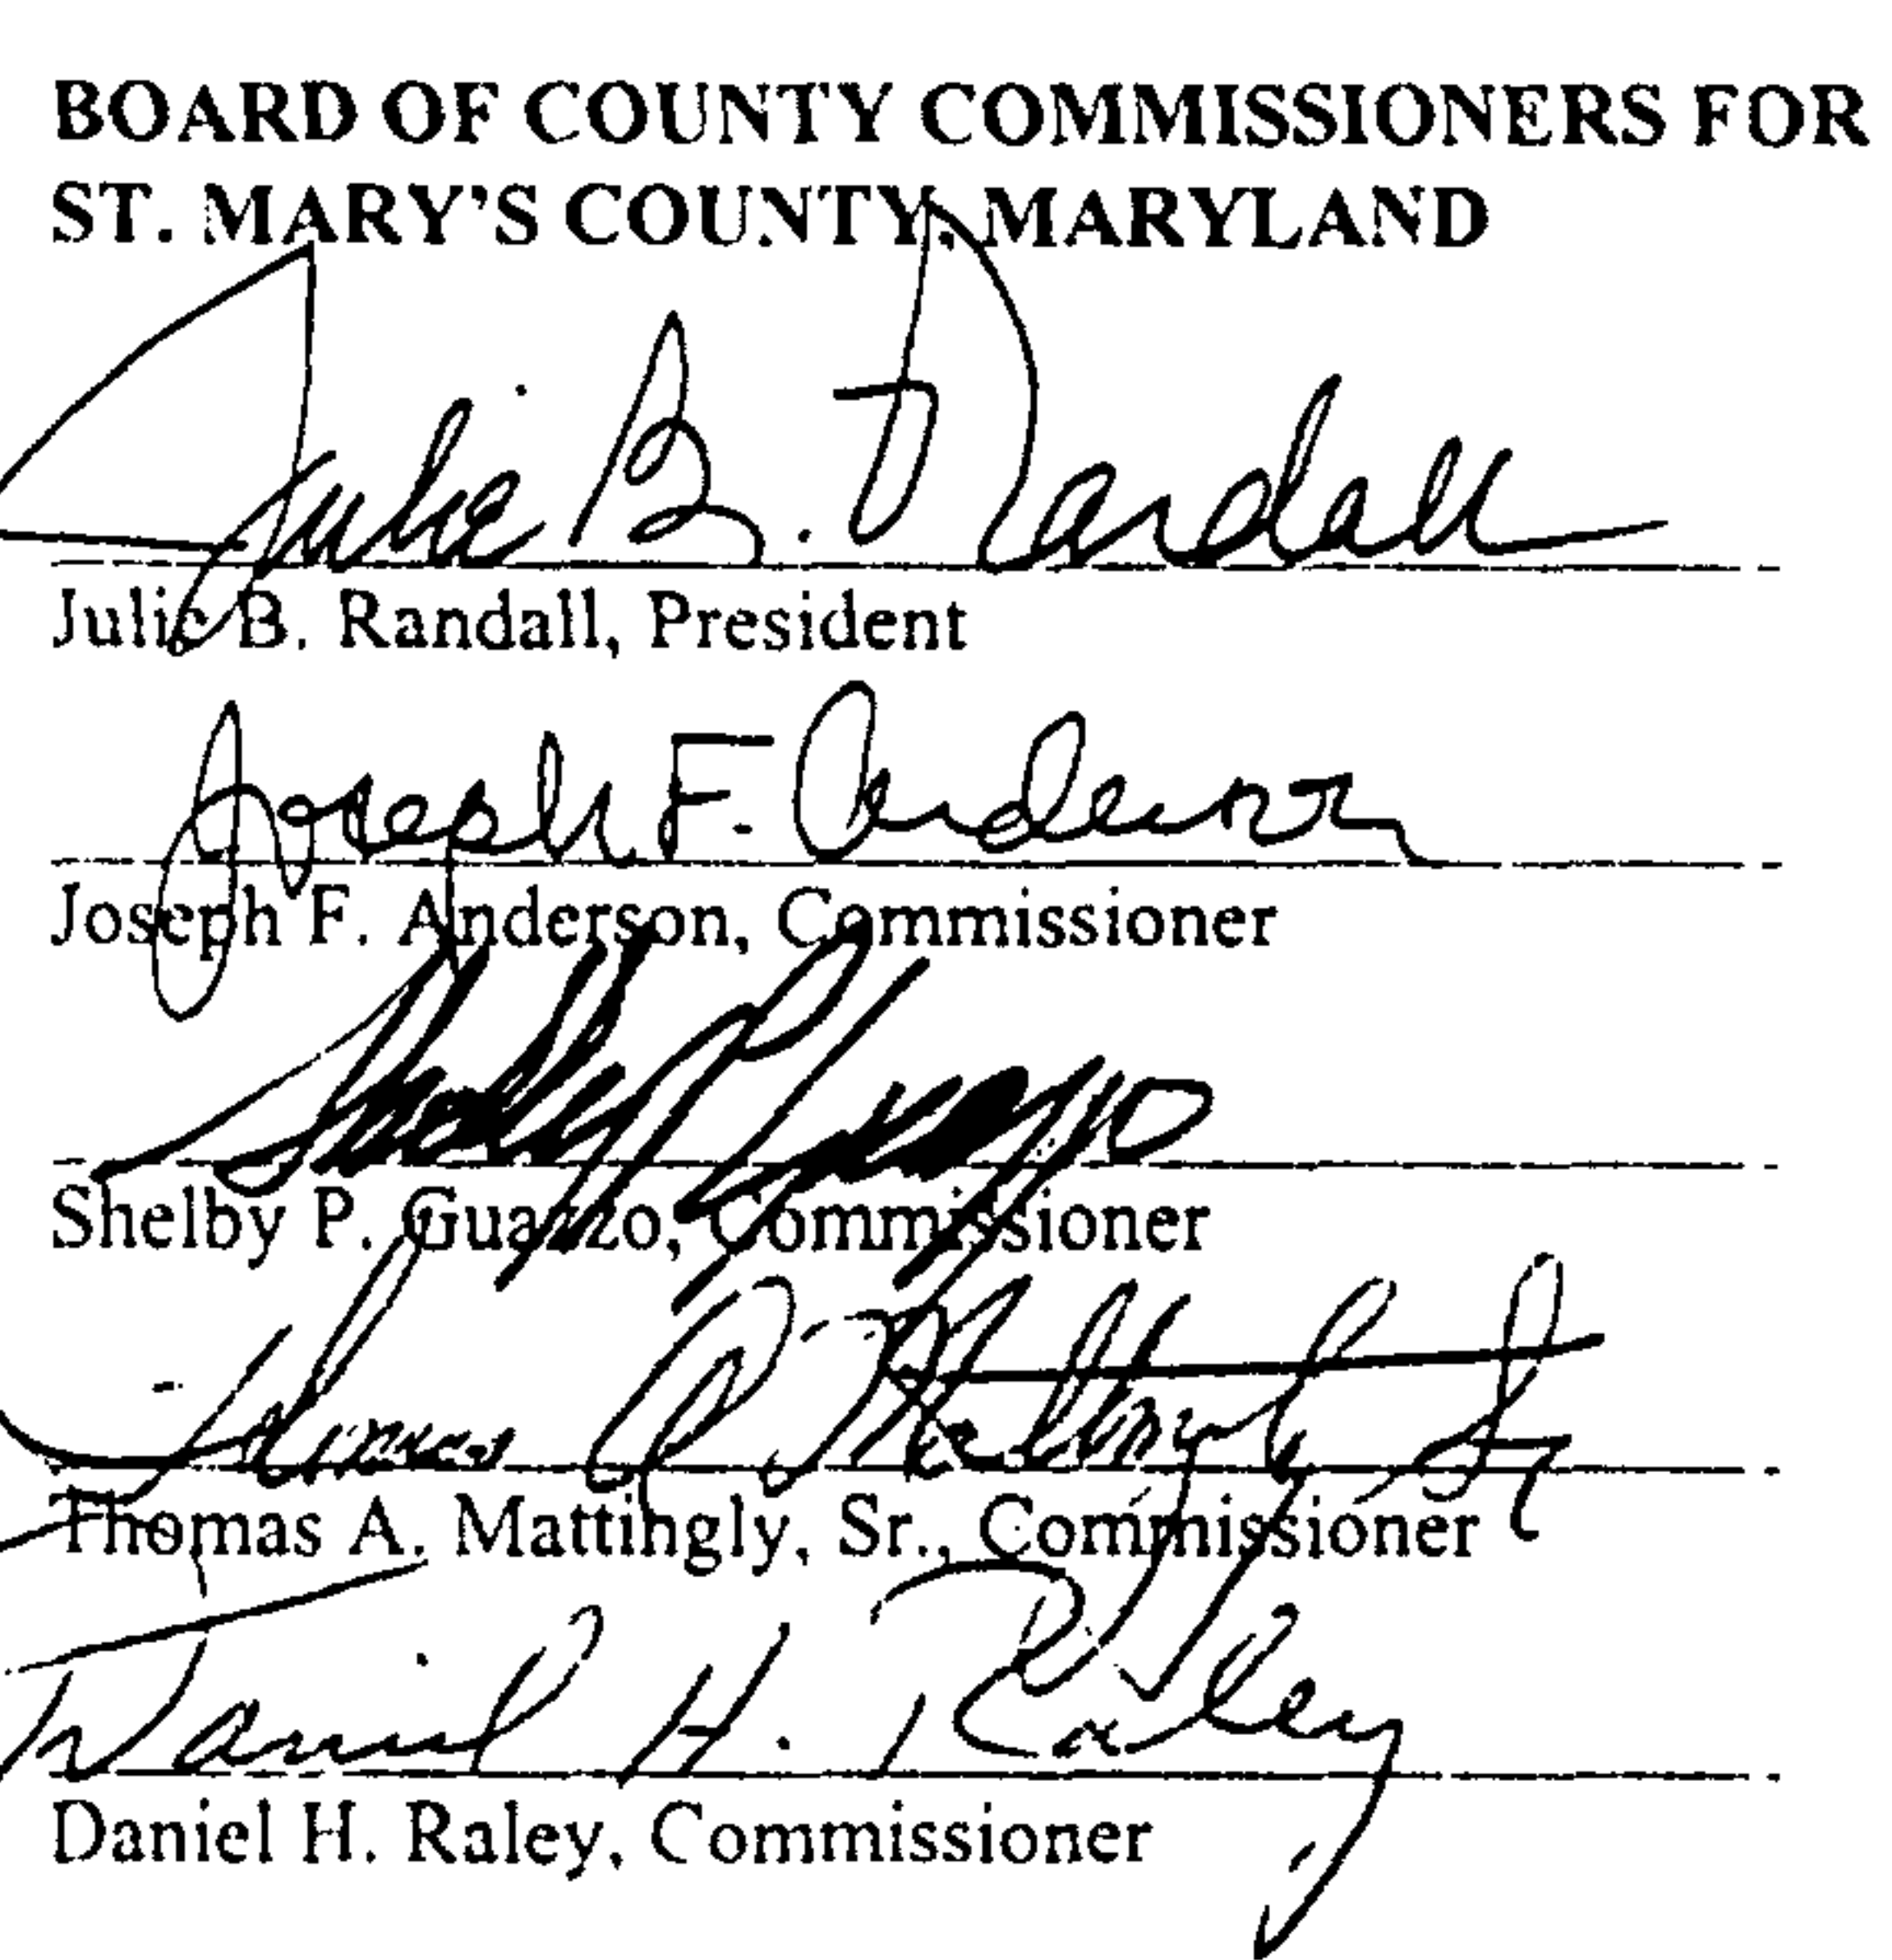 BOARD OF COUNTY COMMISSIONERS FOR
ST. MARY'S COUNTY, MARYLAND
Julie B. Randall
Julie B. Randall, President
Joseph F. Anderson
Joseph F. Anderson, Commissioner
Shelby P. Guazzo
Shelby P. Guazzo, Commissioner
Thomas A. Mattingly Sr
Thomas A. Mattingly, Sr., Commissioner
Daniel H. Raley
Daniel H. Raley, Commissioner